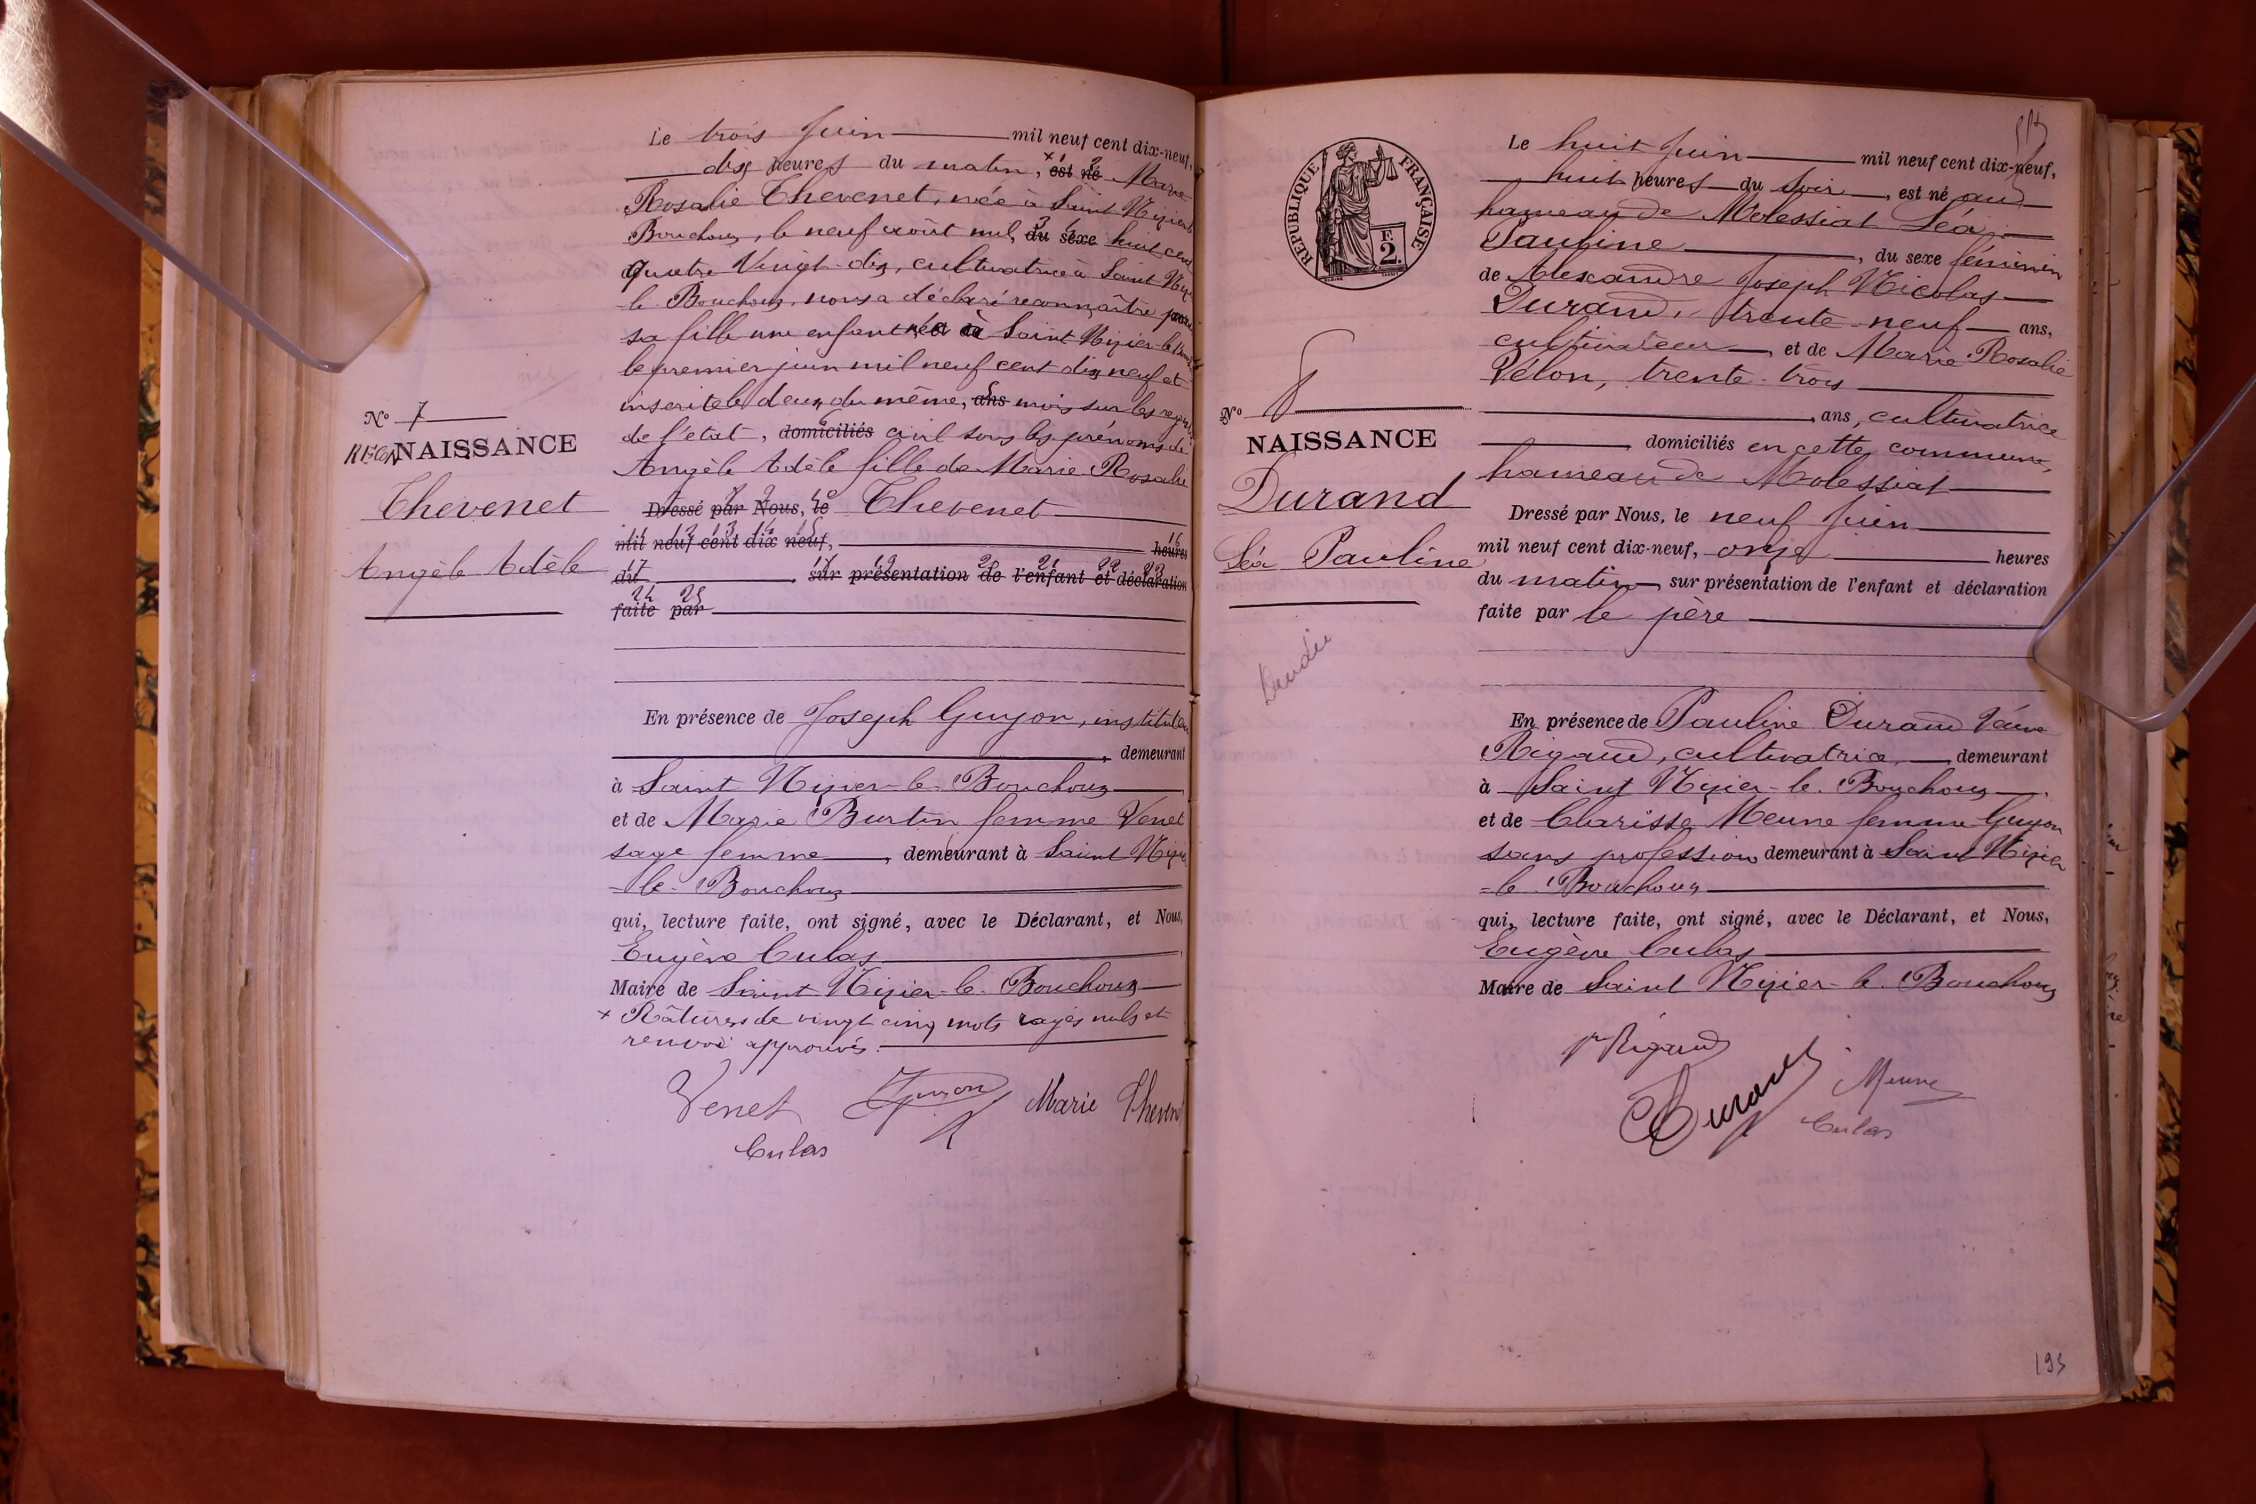 Le trois Juin mil neuf cent dix-neuf,
dix heures du matin, est né Marie
Rosalie Thevenet, née à Saint Nizier le
Bouchoux, le neuf août mil, du sexe huit cent
quatre Vingt-dix, cultivatrice à Saint Nizier
le Bouchoux, nous a déclaré reconnaître pour
sa fille une enfant née à Saint Nizier-le-Bouchoux
le premier juin mil neuf cent dix neuf et
inscrite le deux du même, ans mois sur les registres
de l'état, domiciliés civil sous les prénoms de
Angèle Adèle fille de Marie Rosalie
Dressé par Nous, le Thevenet
mil neuf cent dix neuf, heures
du sur présentation de l'enfant et déclaration
faite par
No 7
RECON NAISSANCE
Thevenet
Angèle Adèle
En présence de Joseph Guyon, instituteur
, demeurant
à Saint Nizier-le-Bouchoux
et de Marie Burtin femme Venet
sage femme, demeurant à Saint Nizier
-le-Bouchoux
qui, lecture faite, ont signé, avec le Déclarant, et Nous,
Eugène Culas
Maire de Saint Nizier-le-Bouchoux
x Râtures de vingt cinq mots rayés nuls et
renvoi approuvés.
Venet Guyon Marie Thevenet
Culas
RÉPUBLIQUE FRANÇAISE
2
Le huit Juin mil neuf cent dix-neuf,
huit heures du soir, est né au
hameau de Molessiat Léa
Pauline, du sexe féminin
de Alexandre Joseph Nicolas
Durand, trente-neuf ans,
cultivateur, et de Marie Rosalie
Vélon, trente-trois
ans, cultivatrice
domiciliés en cette commune,
hameau de Molessiat
Dressé par Nous, le neuf Juin
mil neuf cent dix-neuf, onze heures
du matin, sur présentation de l'enfant et déclaration
faite par le père
No 8
NAISSANCE
Durand
Léa Pauline
En présence de Pauline Durand Veuve
Rigaud, cultivatrice, demeurant
à Saint Nizier-le-Bouchoux
et de Clarisse Meune femme Guyon
sans profession demeurant à Saint Nizier
-le-Bouchoux
qui, lecture faite, ont signé, avec le Déclarant, et Nous,
Eugène Culas
Maire de Saint Nizier-le-Bouchoux
Rigaud
Durand Meune
Culas
193